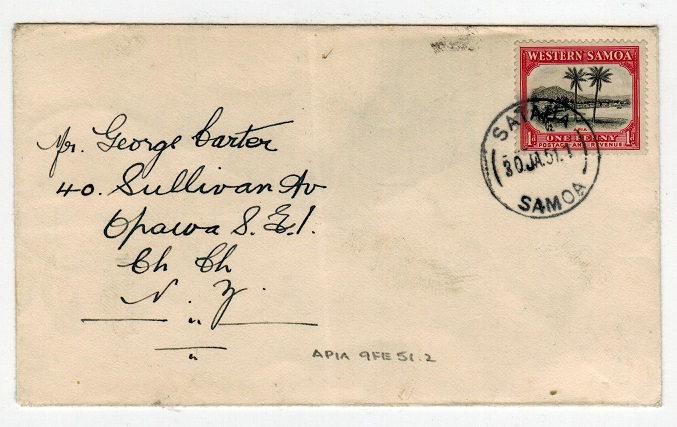 WESTERN SAMOA
1d ONE PENNY 1d
POSTAGE AND REVENUE
30 JA. 51. 1
SAMOA
Mr. George Carter
40. Sullivan Av
Opawa S.E.1.
Ch Ch
N. Z.
APIA 9FE 51.2